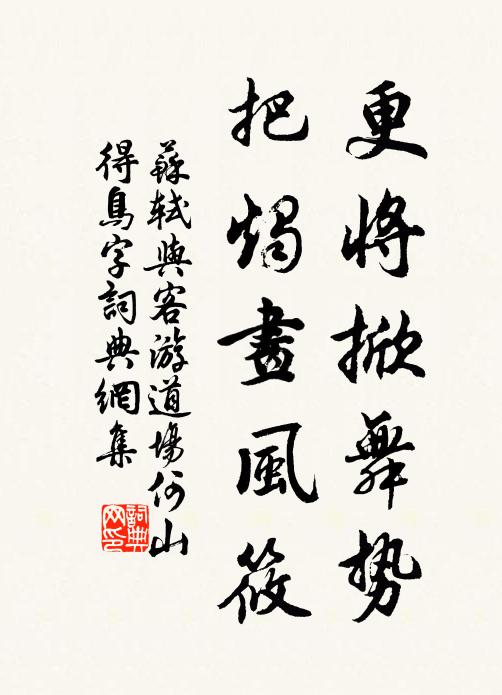 更將掀舞勢
把燭畫風筱
蘇軾與客游道場何山
得鳥字詞典網集
詞典
网印